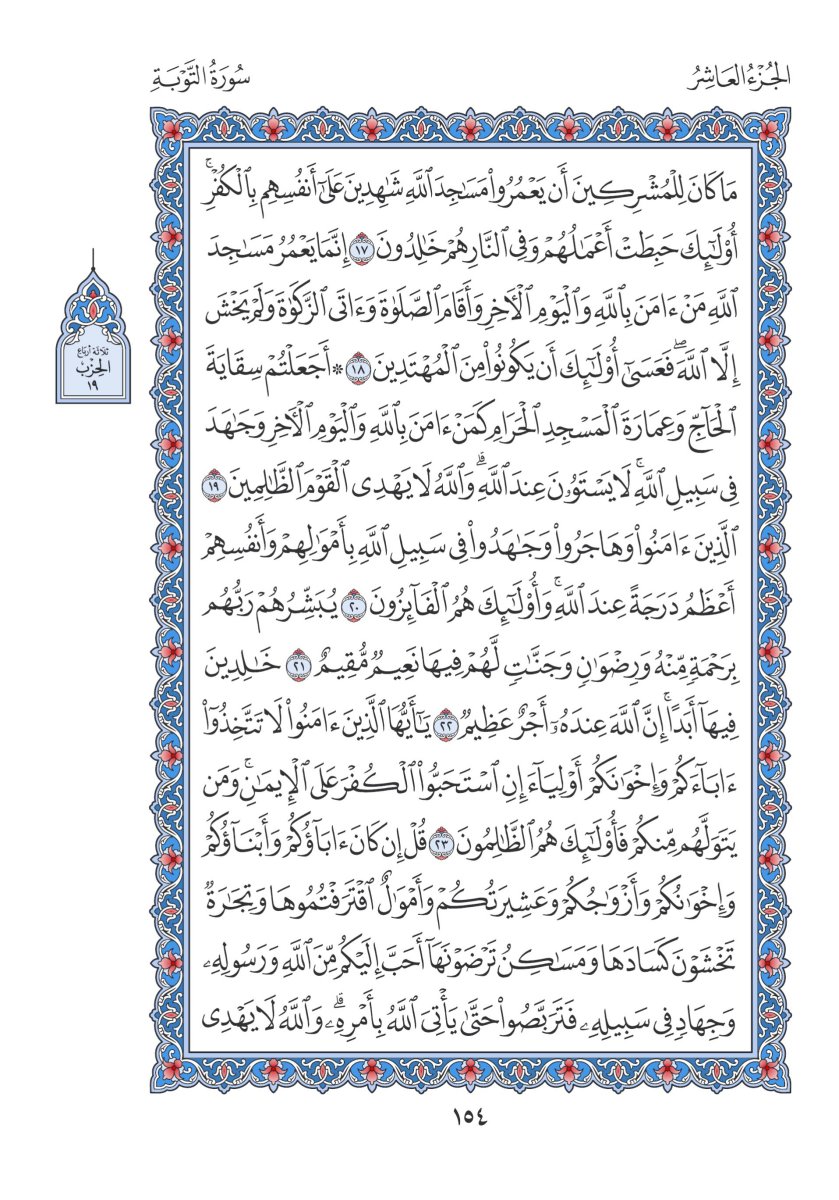 الجُزْءُ العَاشِرُ
سُورَةُ التَّوْبَةِ
مَا كَانَ لِلْمُشْرِكِينَ أَن يَعْمُرُواْ مَسَٰجِدَ ٱللَّهِ شَٰهِدِينَ عَلَىٰٓ أَنفُسِهِم بِٱلْكُفْرِۚ
أُوْلَٰٓئِكَ حَبِطَتْ أَعْمَٰلُهُمْ وَفِي ٱلنَّارِ هُمْ خَٰلِدُونَ ١٧ إِنَّمَا يَعْمُرُ مَسَٰجِدَ
ٱللَّهِ مَنْ ءَامَنَ بِٱللَّهِ وَٱلْيَوْمِ ٱلْأٓخِرِ وَأَقَامَ ٱلصَّلَوٰةَ وَءَاتَى ٱلزَّكَوٰةَ وَلَمْ يَخْشَ
إِلَّا ٱللَّهَۖ فَعَسَىٰٓ أُوْلَٰٓئِكَ أَن يَكُونُواْ مِنَ ٱلْمُهْتَدِينَ ١٨ * أَجَعَلْتُمْ سِقَايَةَ
ٱلْحَآجِّ وَعِمَارَةَ ٱلْمَسْجِدِ ٱلْحَرَامِ كَمَنْ ءَامَنَ بِٱللَّهِ وَٱلْيَوْمِ ٱلْأٓخِرِ وَجَٰهَدَ
فِي سَبِيلِ ٱللَّهِۚ لَا يَسْتَوُۥنَ عِندَ ٱللَّهِۗ وَٱللَّهُ لَا يَهْدِي ٱلْقَوْمَ ٱلظَّٰلِمِينَ ١٩
ٱلَّذِينَ ءَامَنُواْ وَهَاجَرُواْ وَجَٰهَدُواْ فِي سَبِيلِ ٱللَّهِ بِأَمْوَٰلِهِمْ وَأَنفُسِهِمْ
أَعْظَمُ دَرَجَةً عِندَ ٱللَّهِۚ وَأُوْلَٰٓئِكَ هُمُ ٱلْفَآئِزُونَ ٢٠ يُبَشِّرُهُمْ رَبُّهُم
بِرَحْمَةٍ مِّنْهُ وَرِضْوَٰنٍ وَجَنَّٰتٍ لَّهُمْ فِيهَا نَعِيمٌ مُّقِيمٌ ٢١ خَٰلِدِينَ
فِيهَآ أَبَدًاۚ إِنَّ ٱللَّهَ عِندَهُۥٓ أَجْرٌ عَظِيمٌ ٢٢ يَٰٓأَيُّهَا ٱلَّذِينَ ءَامَنُواْ لَا تَتَّخِذُوٓاْ
ءَابَآءَكُمْ وَإِخْوَٰنَكُمْ أَوْلِيَآءَ إِنِ ٱسْتَحَبُّواْ ٱلْكُفْرَ عَلَى ٱلْإِيمَٰنِۚ وَمَن
يَتَوَلَّهُم مِّنكُمْ فَأُوْلَٰٓئِكَ هُمُ ٱلظَّٰلِمُونَ ٢٣ قُلْ إِن كَانَ ءَابَآؤُكُمْ وَأَبْنَآؤُكُمْ
وَإِخْوَٰنُكُمْ وَأَزْوَٰجُكُمْ وَعَشِيرَتُكُمْ وَأَمْوَٰلٌ ٱقْتَرَفْتُمُوهَا وَتِجَٰرَةٌ
تَخْشَوْنَ كَسَادَهَا وَمَسَٰكِنُ تَرْضَوْنَهَآ أَحَبَّ إِلَيْكُم مِّنَ ٱللَّهِ وَرَسُولِهِۦ
وَجِهَادٍ فِي سَبِيلِهِۦ فَتَرَبَّصُواْ حَتَّىٰ يَأْتِيَ ٱللَّهُ بِأَمْرِهِۦۗ وَٱللَّهُ لَا يَهْدِي
ثلاثة أرباع
الحِزْب
١٩
١٥٤